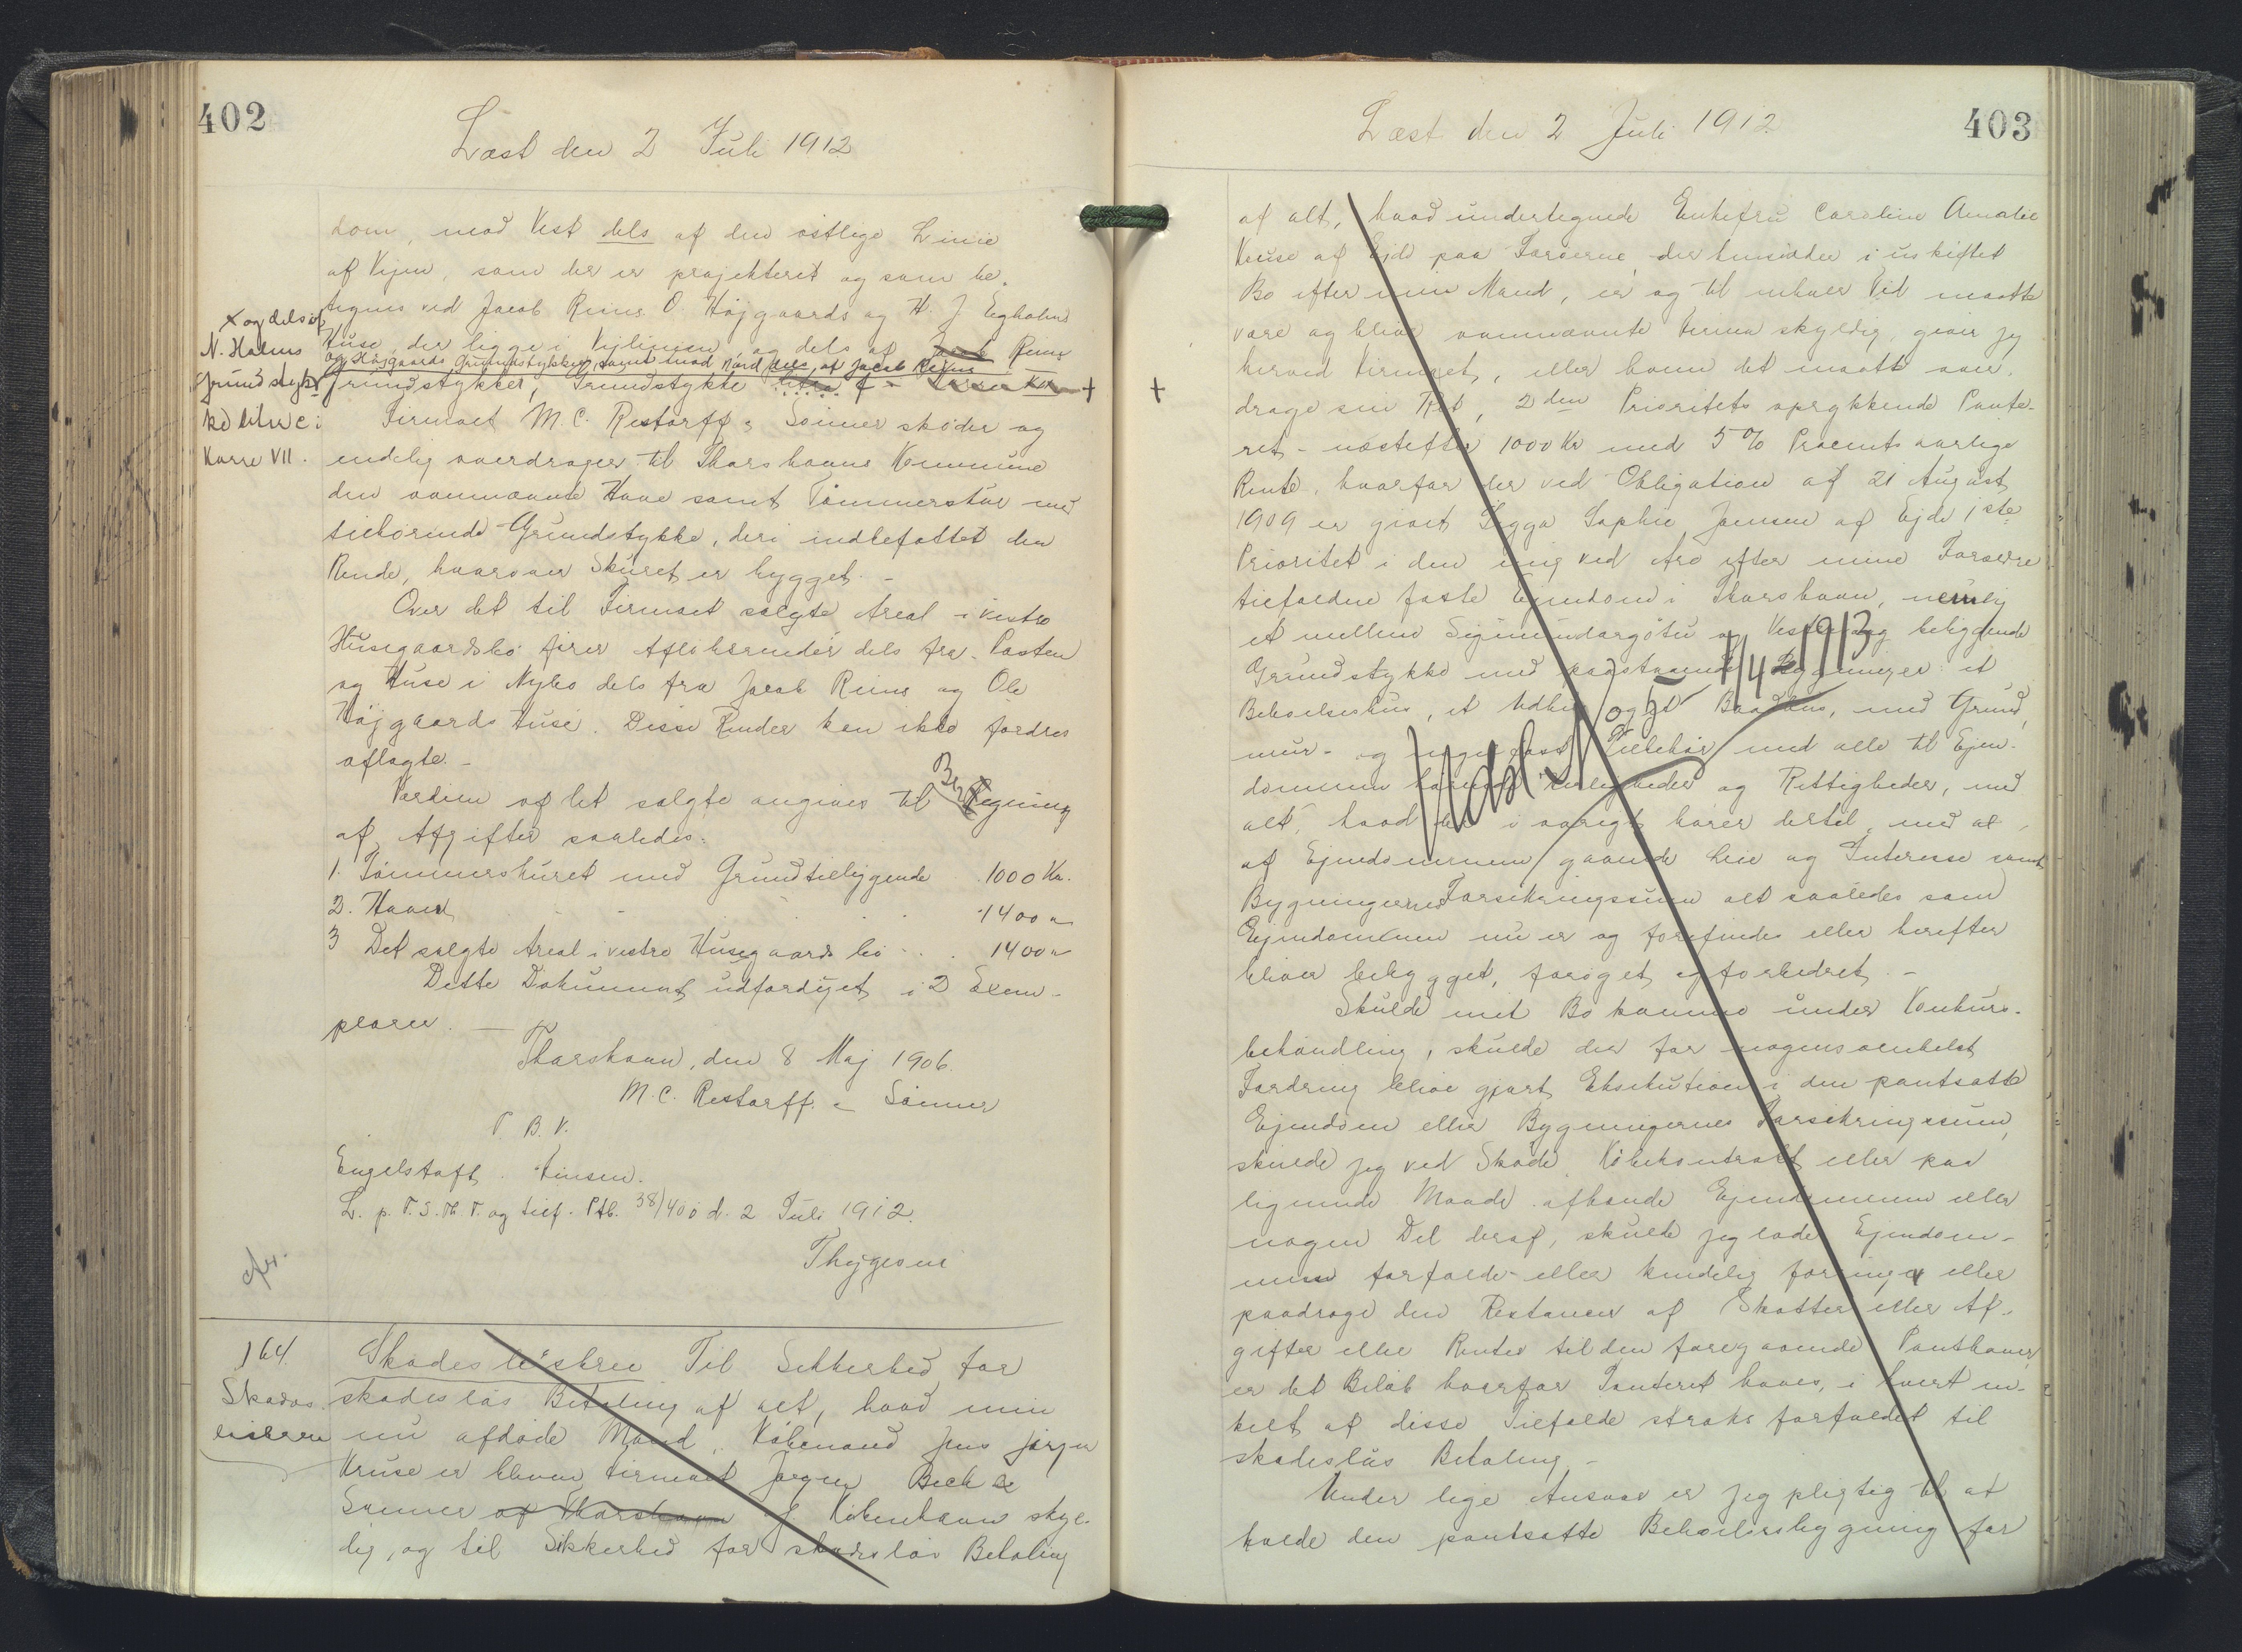 402
Læst den 2 Juli 1912
dom, mod Vest dels af den østlige Linie
af Vejen, som der er projekteret og som be-
tegnes ved Jacob Reins O. Højgaards og H. J. Egholms
Huse, der ligge i Vejlinien og dels af Jacob Reins
og Højgaards Grundstykker, samt mod Nord dels af Jacob Reins
Grundstykker, Grundstykke litra
x og dels af
N. Holms
Grundstyk-
ke litra c i
Karre VII.
Firmaet M. C. Restorff & Sønner skøder og
endelig overdrager til Thorshavns Kommune
den ovennævnte Have samt Tømmerskur med
tilhørende Grundstykke, deri indbefattet den
Rende, hvorover Skuret er bygget. -
Over det til Firmaet solgte Areal i vestre
Husegaardsbø fører Afløbsrender dels fra Posten
og Huse i Nybø dels fra Jacob Reins og Ole
Højgaards Huse. Disse Render kan ikke fordres
aflagte. -
Værdien af det solgte angives til Beregning
af Afgifter saaledes:
1. Tømmerskuret med Grund tilliggende . 1000 Kr.
2. Haven . . . . 1400 "
3 Det solgte Areal i vestre Husegaards bø . . . 1400 "
Dette Dokument udfærdiget i 2 Exem-
plarer. -
Thorshavn, den 8 Maj 1906.
M. C. Restorff & Sønner
T. B. V.
Engelstoft. Finsen.
L. p. F. S. Th. T. og tilf. Ptb. 38/400 d. 2 Juli 1912.
Thygesen
164.
Skades-
løsbrev
Skadesløsbrev Til Sikkerhed for
skadesløs Betaling af alt, hvad min
nu afdøde Mand, Købmand Jens Jørgen
Kruse er bleven Firmaet Jørgen Bech &
Sønner af Thorshavn i København skyl-
dig, og til Sikkerhed for skadesløs Betaling
403
Læst den 2 Juli 1912
af alt, hvad undertegnede Enkefru Caroline Amalie
Kruse af Ejde paa Færøerne, der hensidder i uskiftet
Bo efter min Mand, er og til enhver Tid maatte
være og blive ovennævnte Firma skyldig, giver jeg
herved Firmaet, eller hvem det maatte over-
drage sin Ret, 2den Prioritets oprykkende Pante-
ret - næstefter 1000 Kr med 5 % Procents aarlige
Rente, hvorfor der ved Obligation af 21 August
1909 er givet Sigga Sophie Joensen af Ejde 1ste
Prioritet i den mig ved Arv efter mine Forældre
tilfaldne faste Ejendom i Thorshavn, nemlig
et mellem Sigmundargøtu og Vesterveg beliggende
Grundstykke med paastaaende Bygninger: et
Beboelseshus, et Udhus og et Baadhus, med Grund,
mur- og nagelfast Tilbehør med alle til Ejen-
dommen hørende Herligheder og Rettigheder, med
alt, hvad der i øvrigt hører dertil, med al
af Ejendommen gaaende Leie og Interesse samt
Bygningernes Forsikringssum alt saaledes som
Ejendommen nu er og forefindes eller herefter
bliver bebygget, forøget og forbedret. -
Skulde mit Bo komme under Konkurs-
behandling, skulde der for nogensomhelst
Fordring blive gjort Eksekution i den pantsatte
Ejendom eller Bygningernes Forsikringssum,
skulde jeg ved Skøde, Købekontrakt eller paa
lignende Maade afhænde Ejendommen eller
nogen Del deraf, skulde jeg lade Ejendom-
men forfalde eller kendelig forringe eller
paadrage den Restancer af Skatter eller Af-
gifter eller Renter til den foregaaende Panthaver,
er det Beløb hvorfor Panteret haves, i hvert en-
kelt af disse Tilfælde straks forfaldet til
skadesløs Betaling. -
Under lige Ansvar er jeg pligtig til at
holde den pantsatte Beboelsesbygning for
Udsl. 1/4 1913